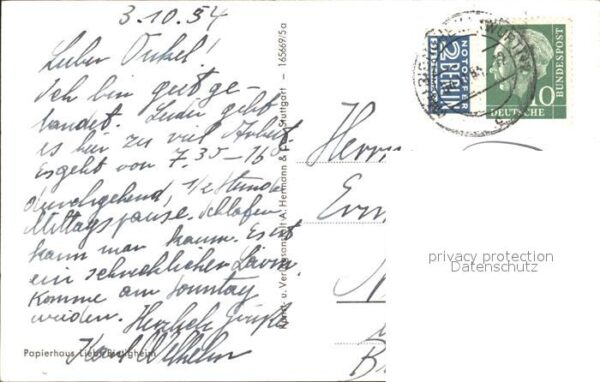 3.10.54
Lieber Onkel!
Ich bin gut ge-
landet. Leider gibt
es hier zu viel Arbeit
Es geht von 7.35 – 16
durchgehend, 1/2 Stunde
Mittagspause. Schlafen
kann man kaum. Es ist
ein schrecklicher Lärm.
Komme am Sonntag
wieder. Herzlich grüßt
Karl Wilhelm
Papierhaus Bietigheim
A. Hermann & Stuttgart — 165669/5a
Herrn
NOTOPFER
2 BERLIN
STEUERMARKE
DEUTSCHE
BUNDESPOST
10
privacy protection
Datenschutz